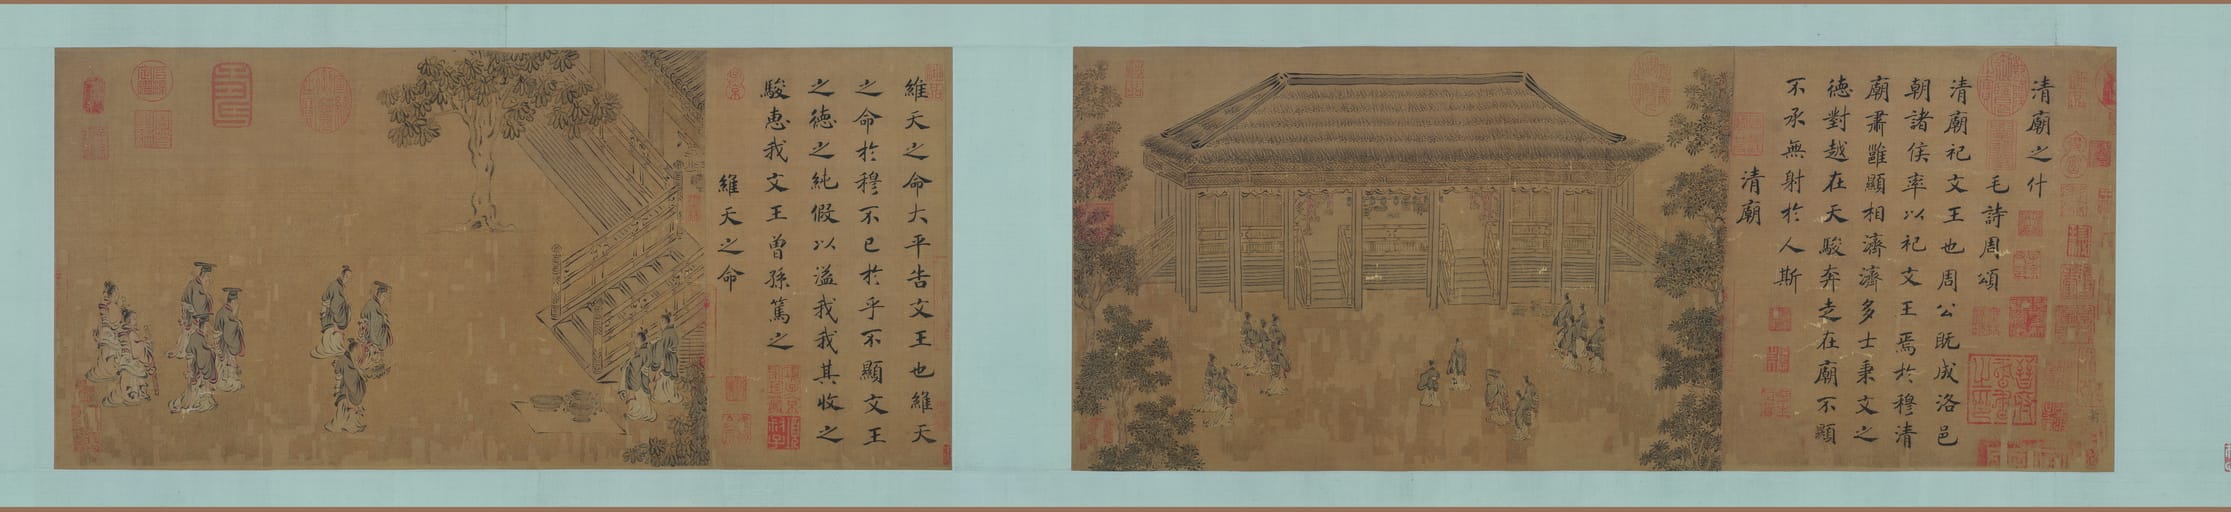 清廟之什
毛詩周頌
清廟祀文王也周公既成洛邑
朝諸侯率以祀文王焉於穆清
廟肅雝顯相濟濟多士秉文之
德對越在天駿奔走在廟不顯
不承無射於人斯
清廟
維天之命大平告文王也維天
之命於穆不已於乎不顯文王
之德之純假以溢我我其收之
駿惠我文王曾孫篤之
維天之命